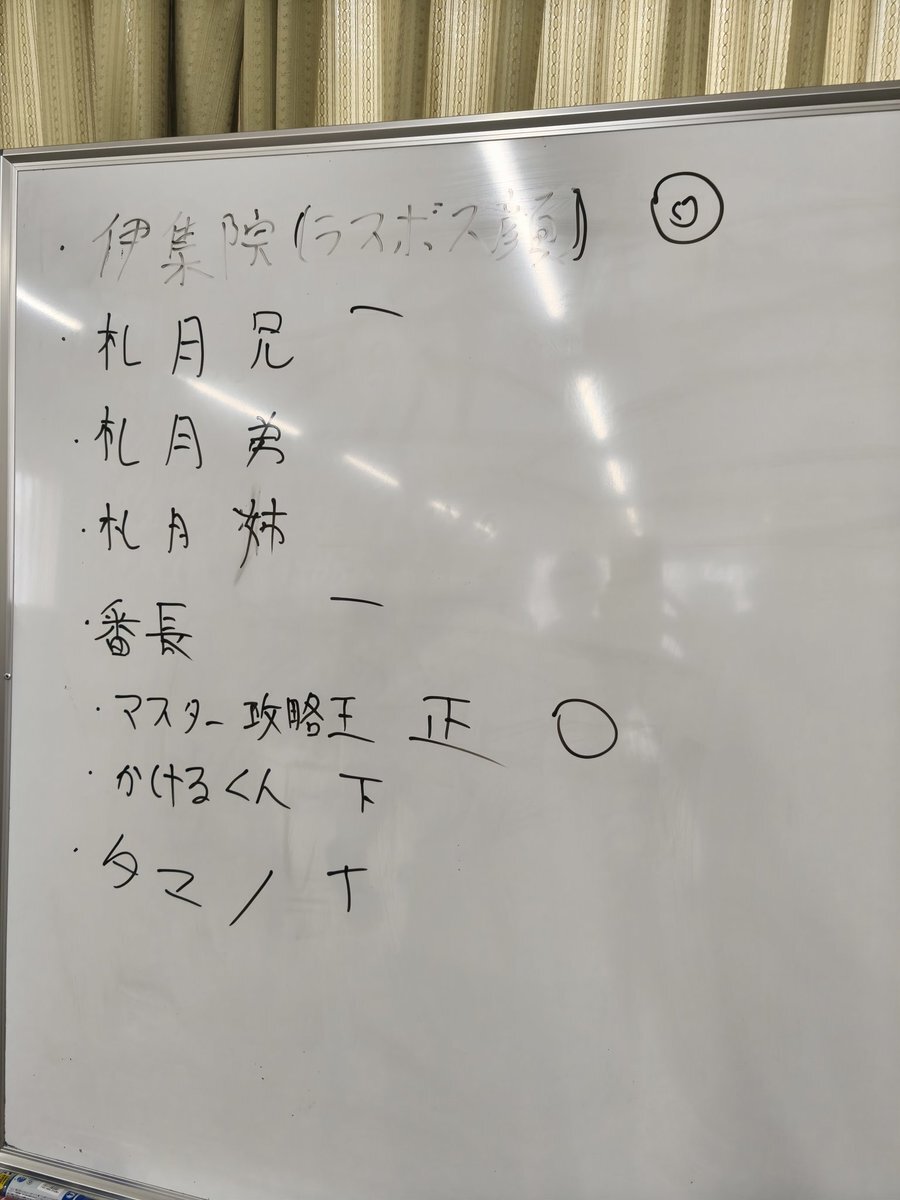 ・伊集院(ラスボス顔)
・札月兄 一
・札月弟
・札月姉
・番長 一
・マスター攻略王 正 ○
・かけるくん 下
・タマノ T